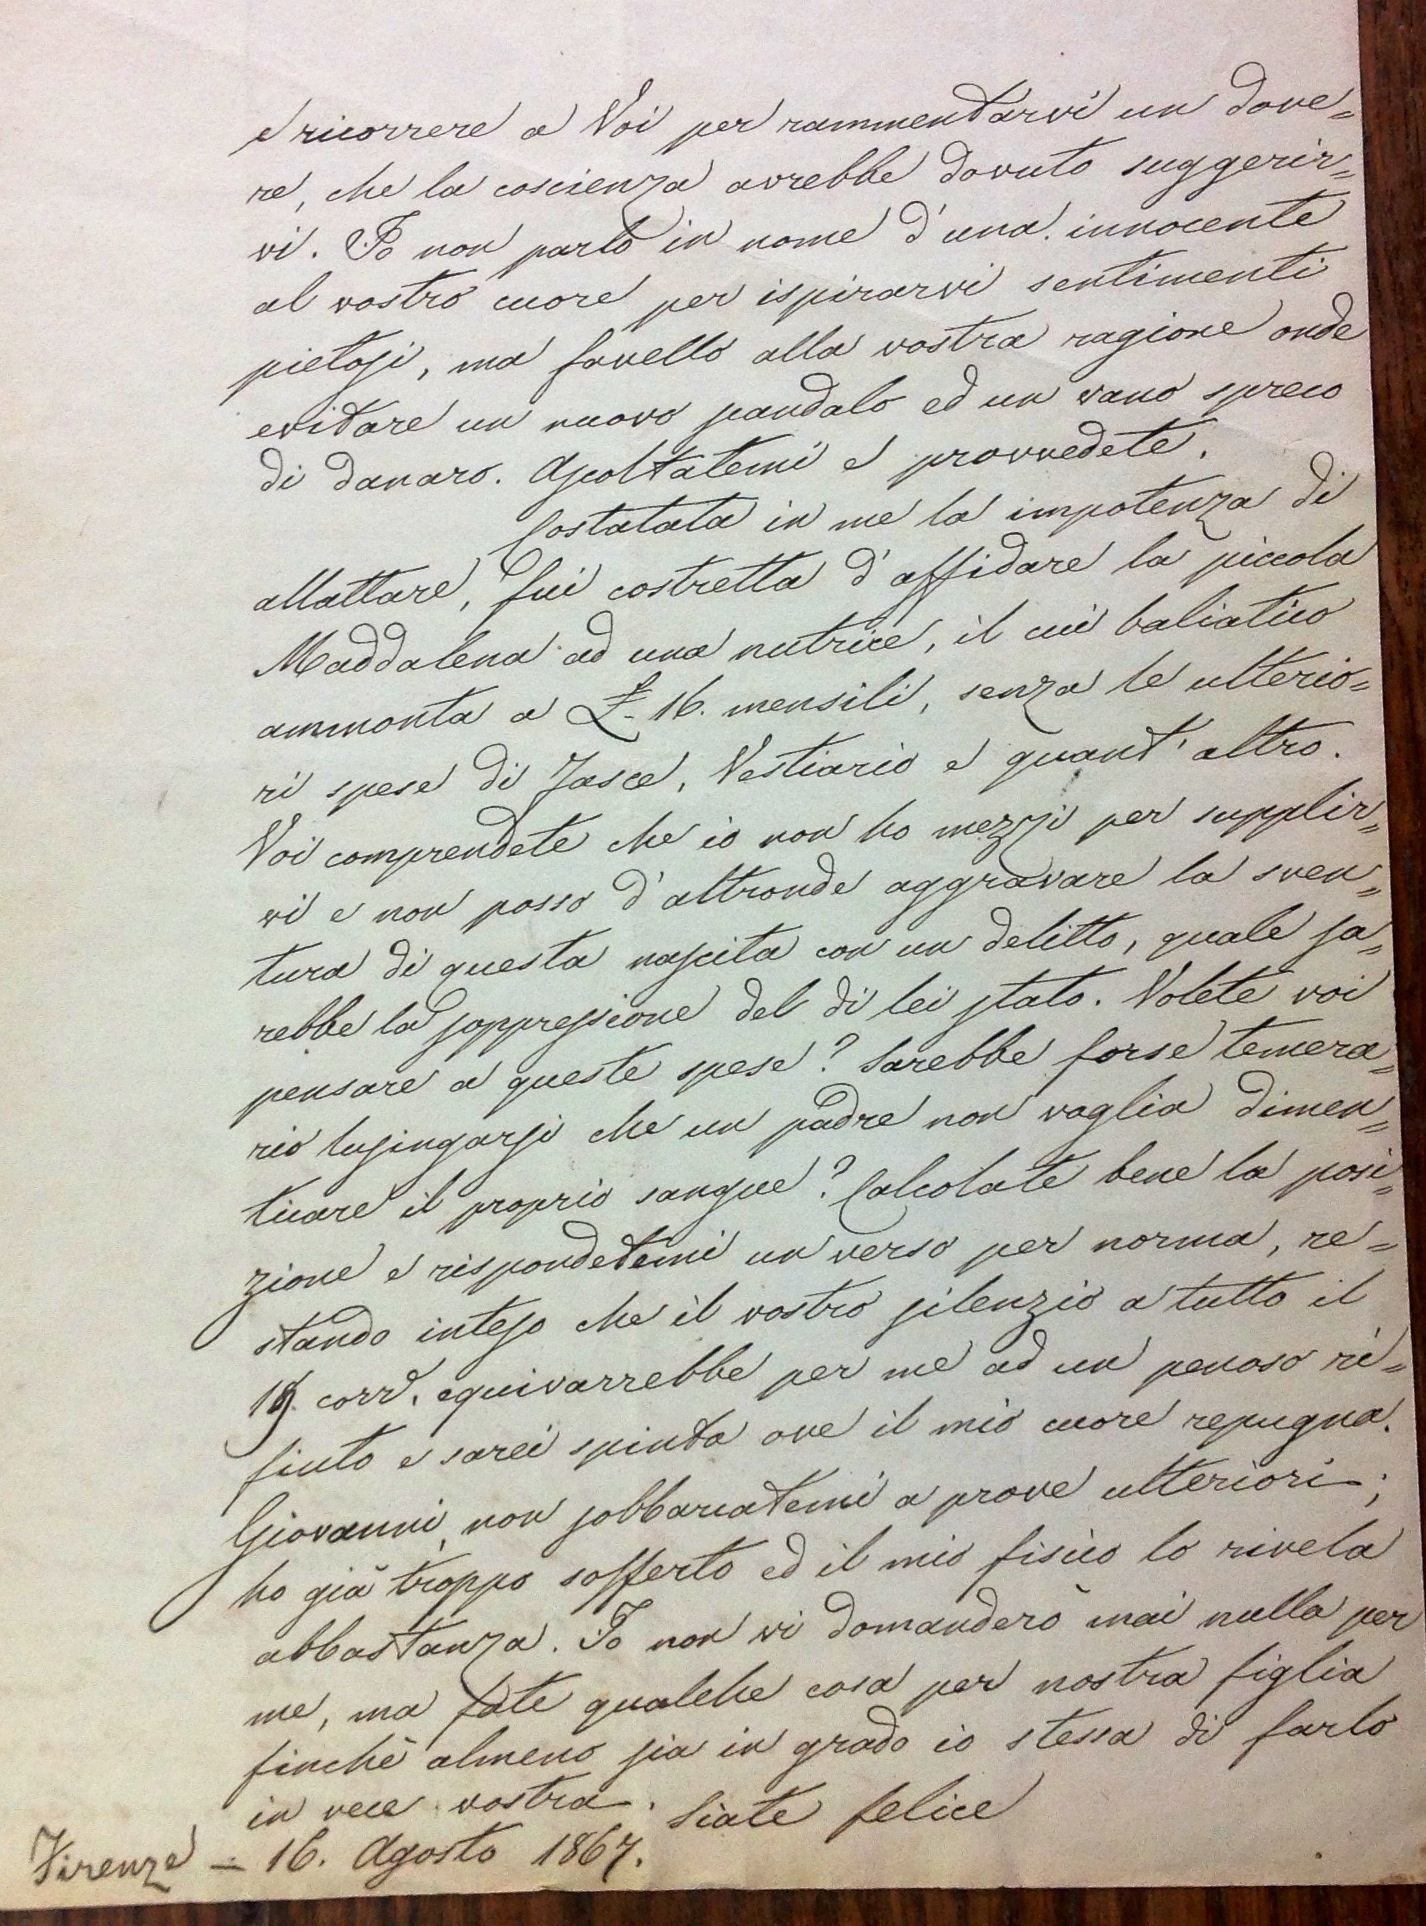 e ricorrere a Voi per rammentarvi un dove=
re, che la coscienza avrebbe dovuto suggerir=
vi. Io non parlo in nome d'una innocente
al vostro cuore per ispirarvi sentimenti
pietosi, ma favello alla vostra ragione onde
evitare un nuovo scandalo ed un vano spreco
di danaro. Ascoltatemi e provvedete.
Costatata in me la impotenza di
allattare, fui costretta d'affidare la piccola
Maddalena ad una nutrice, il cui baliatico
ammonta a £. 16. mensili, senza le ulterio=
ri spese di Fasce, Vestiario e quant'altro.
Voi comprendete che io non ho mezzi per supplir=
vi e non posso d'altronde aggravare la sven=
tura di questa nascita con un delitto, quale sa=
rebbe la soppressione del di lei stato. Volete voi
pensare a queste spese? Sarebbe forse temera=
rio lusingarsi che un padre non voglia dimen=
ticare il proprio sangue? Calcolate bene la posi=
zione e rispondetemi un verso per norma, re=
stando inteso che il vostro silenzio a tutto il
19 corr. equivarrebbe per me ad un penoso ri=
fiuto e sarei spinta ove il mio cuore repugna.
Giovanni, non sobbarcatemi a prove ulteriori;
ho già troppo sofferto ed il mio fisico lo rivela
abbastanza. Io non vi domanderò mai nulla per
me, ma fate qualche cosa per nostra figlia
finchè almeno sia in grado io stessa di farlo
in vece vostra. Siate felice
Firenze = 16. Agosto 1867.